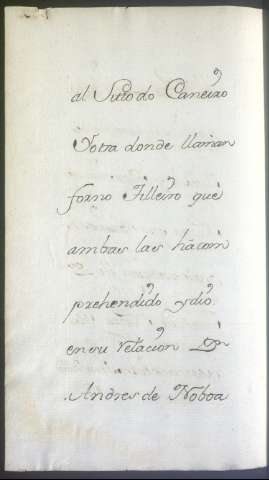 al Sitio do Caneiro
Yotra donde llaman
forno Filleiro que
ambas las hâ com
prehendido ydio
en su relacion Dn
Andres de Noboa